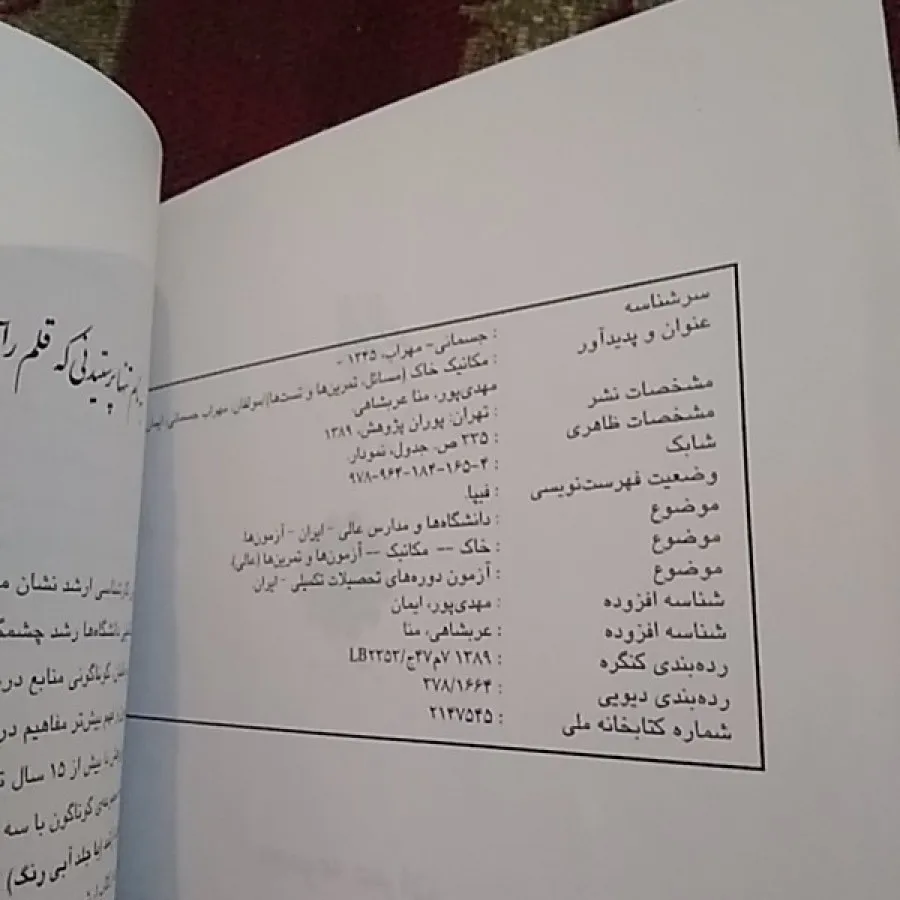 سرشناسه : جسمانی- مهراب، ۱۳۴۵ -
عنوان و پدیدآور : مکانیک خاک (مسائل، تمرین‌ها و تست‌ها)/مولفان مهراب جسمانی، ایمان
مهدی‌پور، منا عربشاهی.
مشخصات نشر : تهران: پوران پژوهش، ۱۳۸۹
مشخصات ظاهری : ۲۳۵ ص. جدول، نمودار.
شابک : ۹۷۸-۹۶۴-۱۸۴-۱۶۵-۴
وضعیت فهرست‌نویسی : فیپا.
موضوع : دانشگاه‌ها و مدارس عالی - ایران - آزمون‌ها.
موضوع : خاک -- مکانیک -- آزمون‌ها و تمرین‌ها (عالی).
موضوع : آزمون دوره‌های تحصیلات تکمیلی - ایران.
شناسه افزوده : مهدی‌پور، ایمان
شناسه افزوده : عربشاهی، منا
رده‌بندی کنگره : ۱۳۸۹ ۷م۴۷ج/LB۲۳۵۳
رده‌بندی دیویی : ۳۷۸/۱۶۶۴
شماره کتابخانه ملی : ۲۱۴۷۵۴۵
که قلم را
ارشد نشان
دانشگاه‌ها رشد
گوناگونی منابع
بیش‌تر مفاهیم
بیش از ۱۵ سال
گوناگون با سه
جلد آبی رنگ)